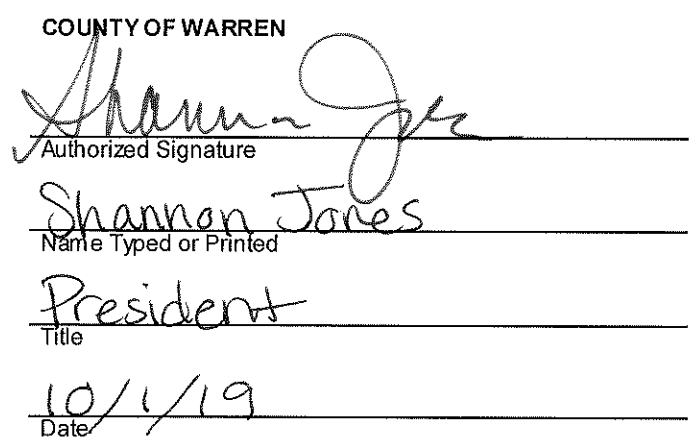 COUNTY OF WARREN
Shannon Jones
Authorized Signature
Shannon Jones
Name Typed or Printed
President
Title
10/1/19
Date